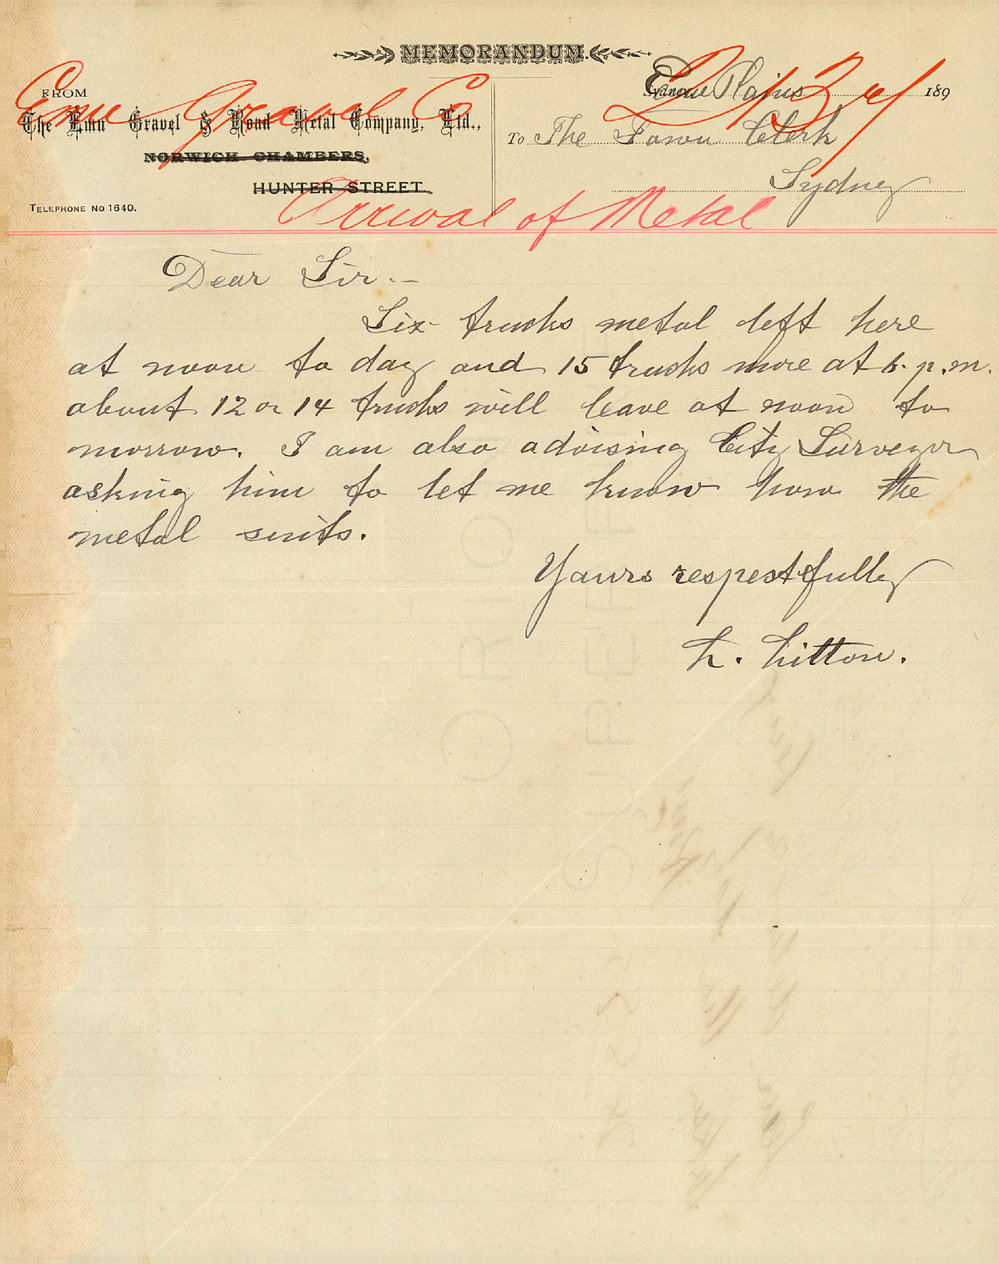 MEMORANDUM.
FROM
Emu Gravel Co
The Emu Gravel & Road Metal Company, Ltd.,
NORWICH CHAMBERS,
HUNTER STREET
TELEPHONE No 1640.
Emu Plains 189
To The Town Clerk
Sydney
Arrival of Metal
Dear Sir.–
Six trucks metal left here
at noon to day and 15 trucks more at 6. p.m.
about 12 or 14 trucks will leave at noon to
morrow. I am also advising City Surveyor
asking him to let me know how the
metal suits.
Yours respectfully